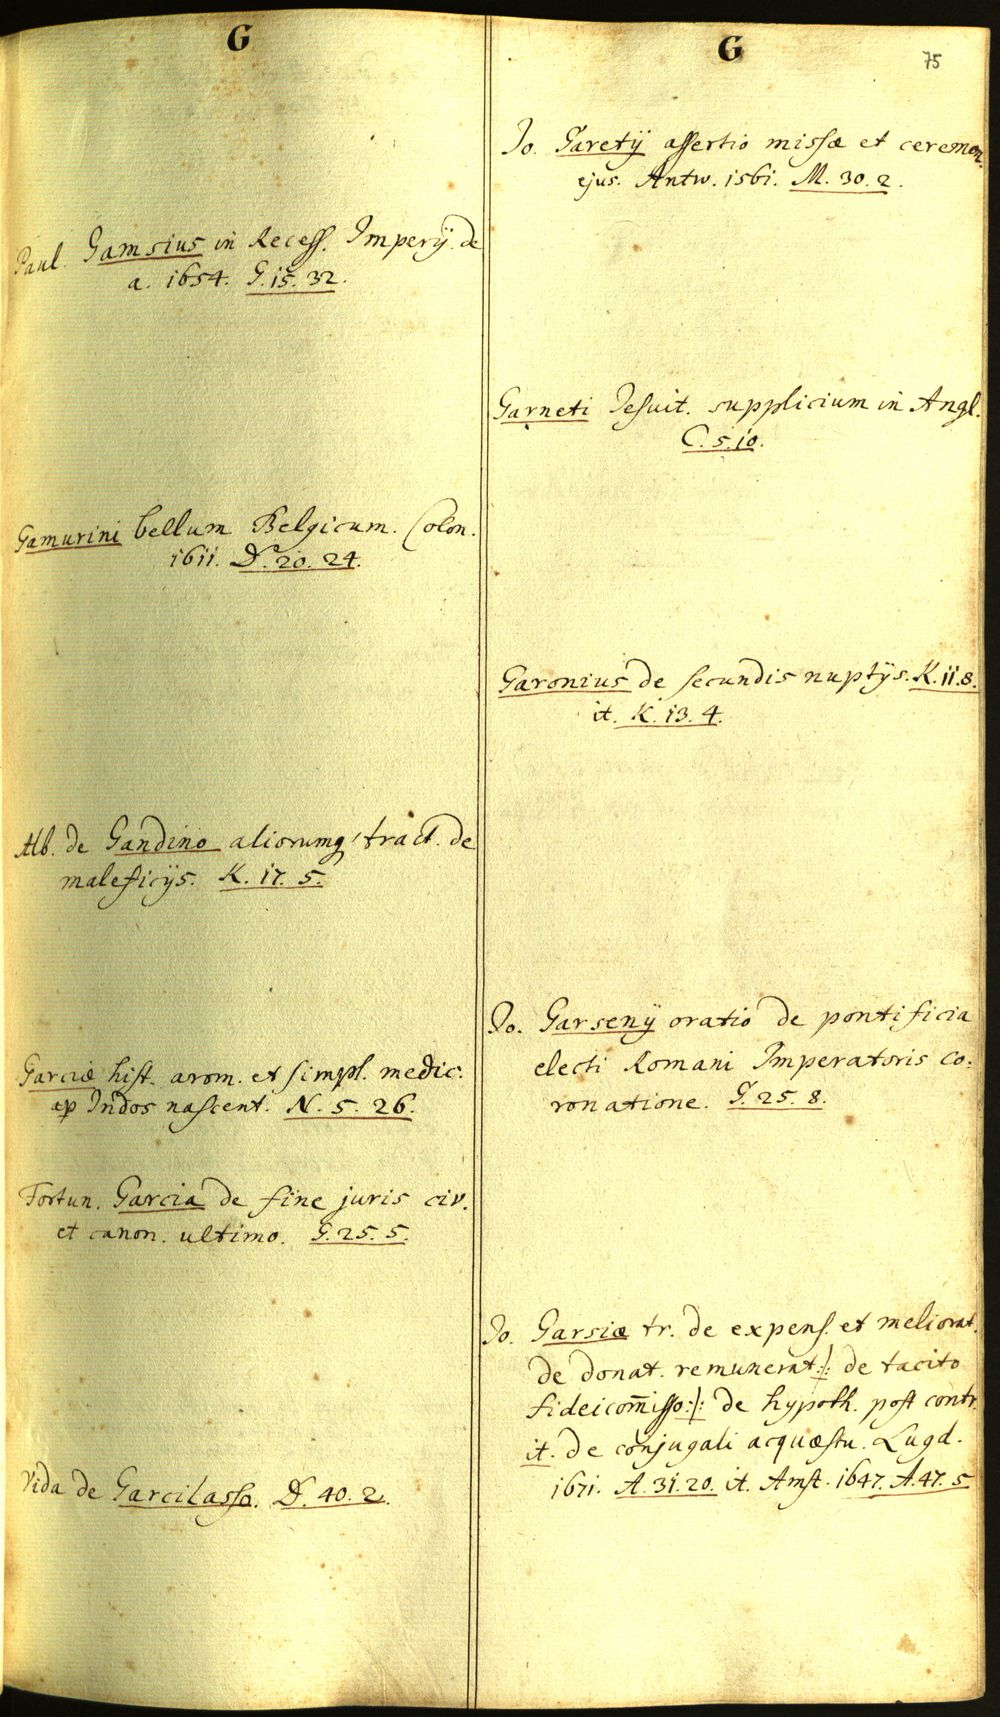 G
Paul. Gamsius in Recess. Imperij de
a. 1654. G. 15. 32.
Gamurini bellum Belgicum. Colon.
1611. D. 20. 24.
Alb. de Gandino aliorumq' tract. de
maleficijs. K. 17. 5.
Garciæ hist. arom. et simpl. medic:
ap Indos nascent. N. 5. 26.
Fortun. Garcia de fine juris civ.
et canon. ultimo. G. 25. 5.
Vida de Garcilasso. D. 40. 2.
G
75
Jo. Garetij assertio missæ et ceremon.
ejus. Antw. 1561. M. 30. 2.
Garneti Jesuit. supplicium in Angl.
C. 5. 10.
Garonius de secundis nuptijs. K. 11. 8.
it. K. 13. 4.
Jo. Garsenij oratio de pontificia
electi Romani Imperatoris co:
ronatione. G. 25. 8.
Jo. Garsiæ tr. de expens. et meliorat.
de donat. remunerat:/: de tacito
fideicom̄isso:/: de hypoth. post contr.
it. de conjugali acquæstu. Lugd.
1671. A. 31. 20. it. Amst. 1647. A. 47. 5